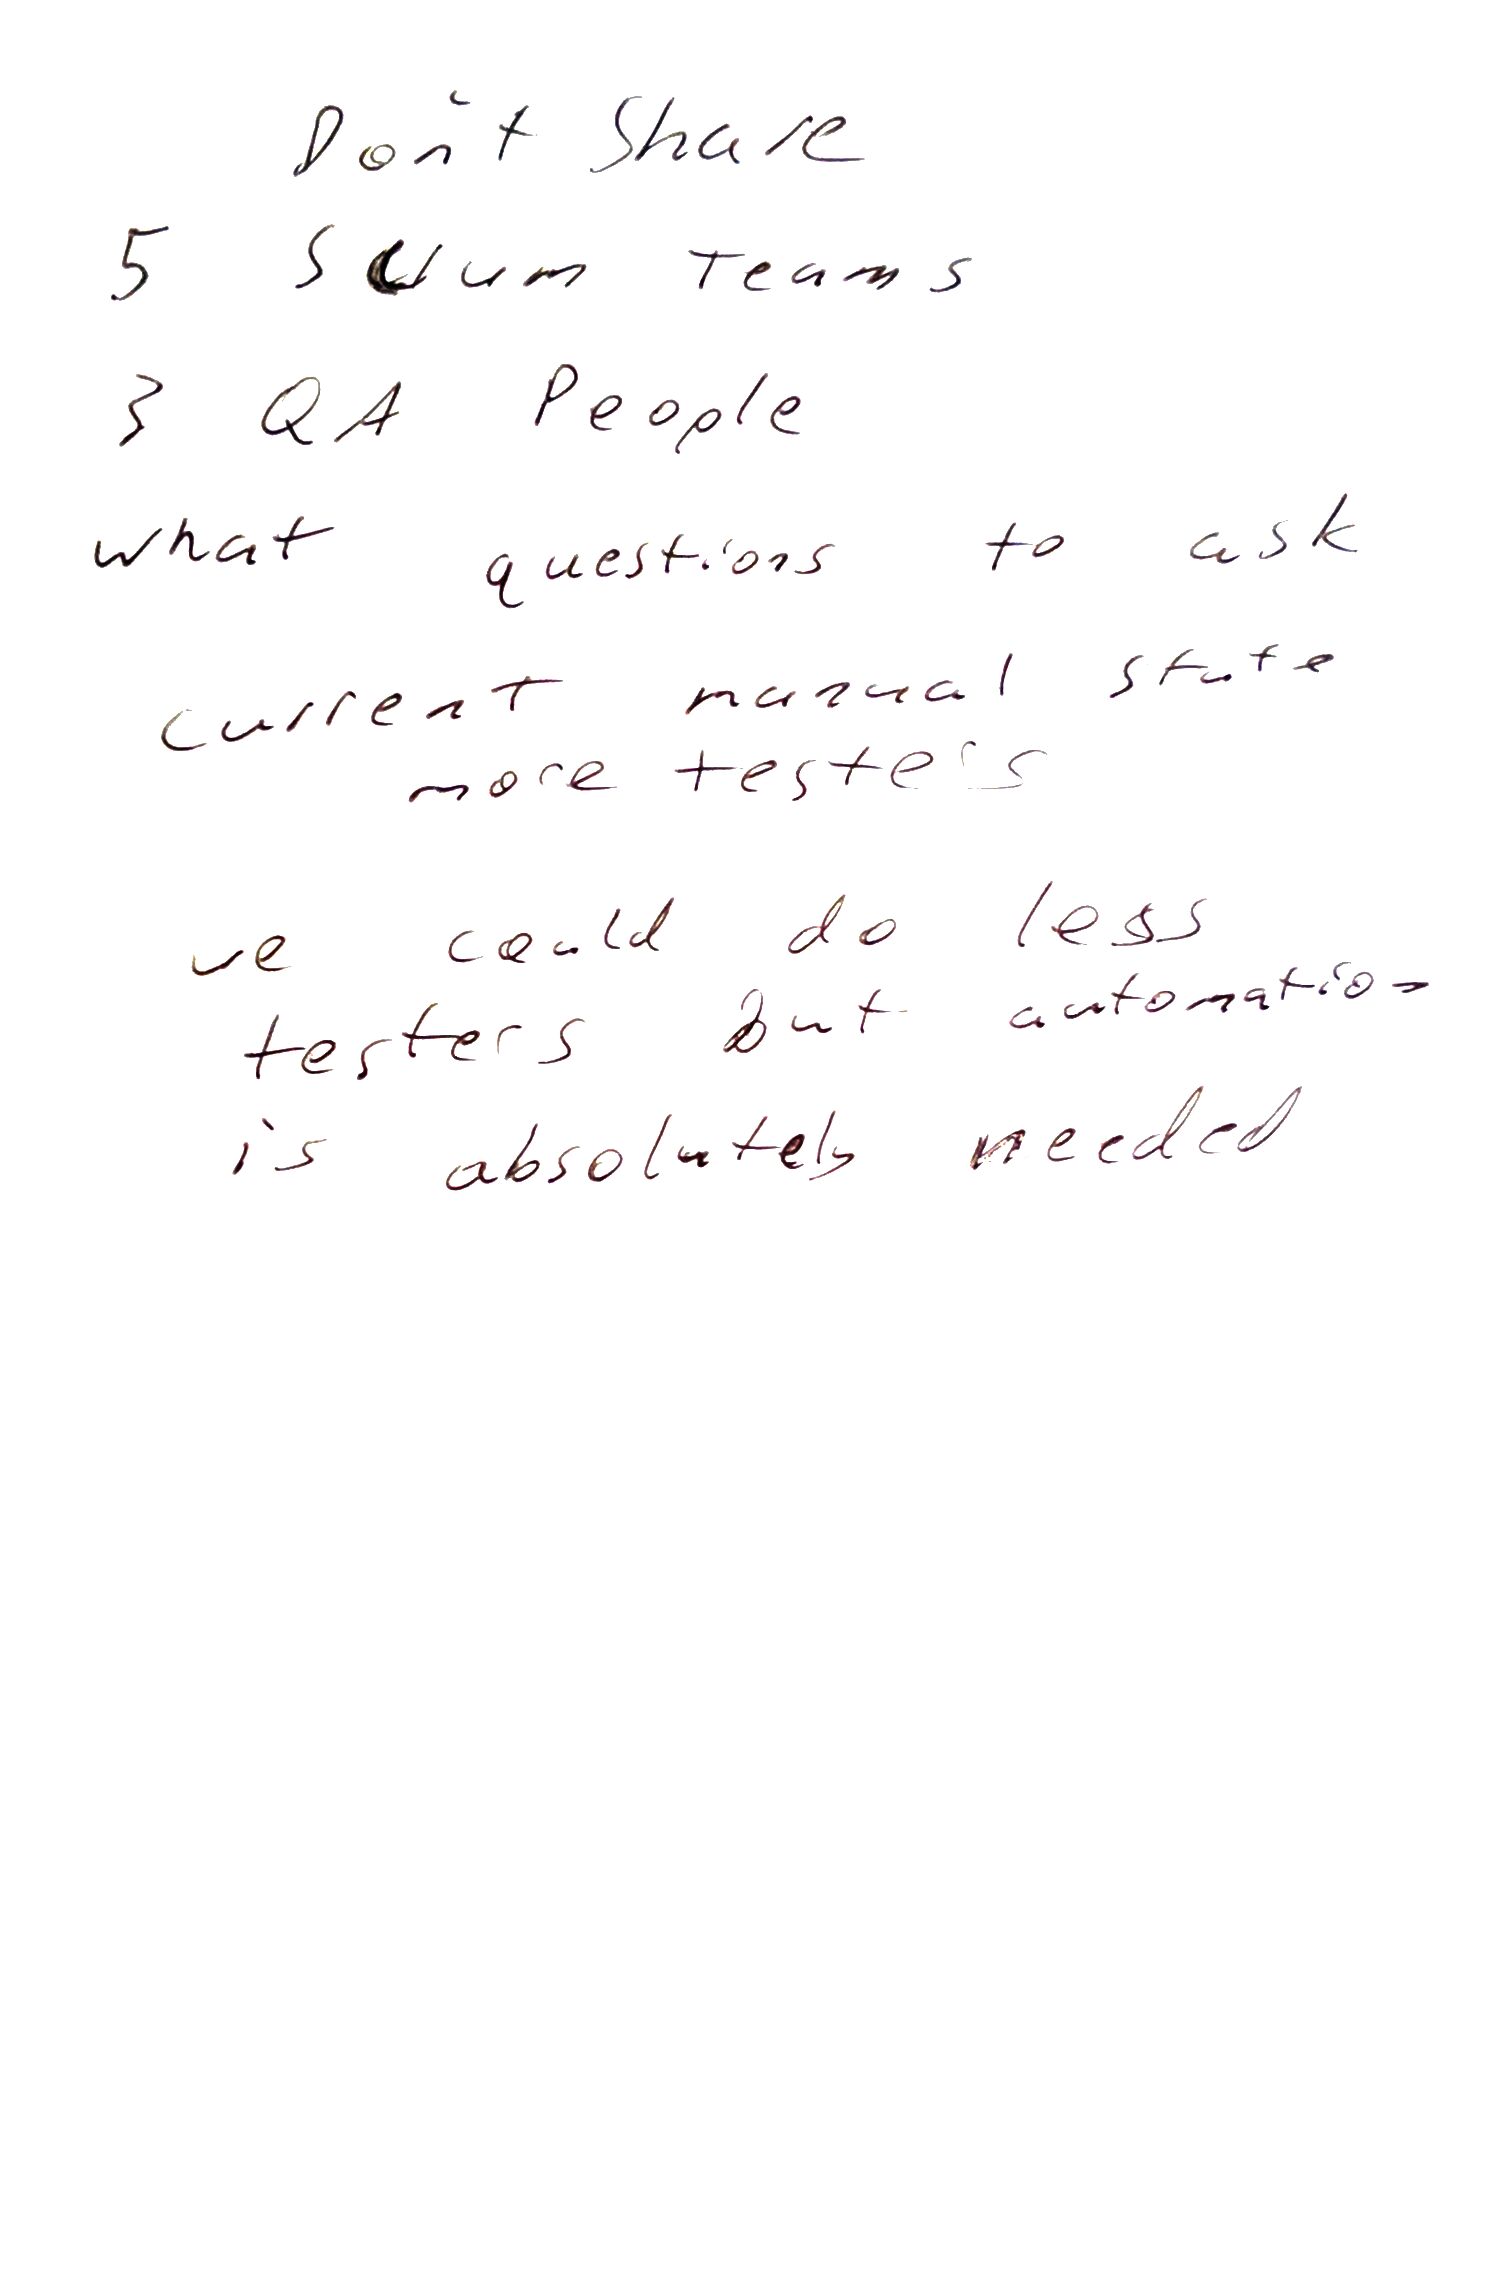 Don't Share
5 Scrum Teams
3 QA People
what questions to ask
current manual state
more testers
we could do less
testers but automation
is absolutely needed